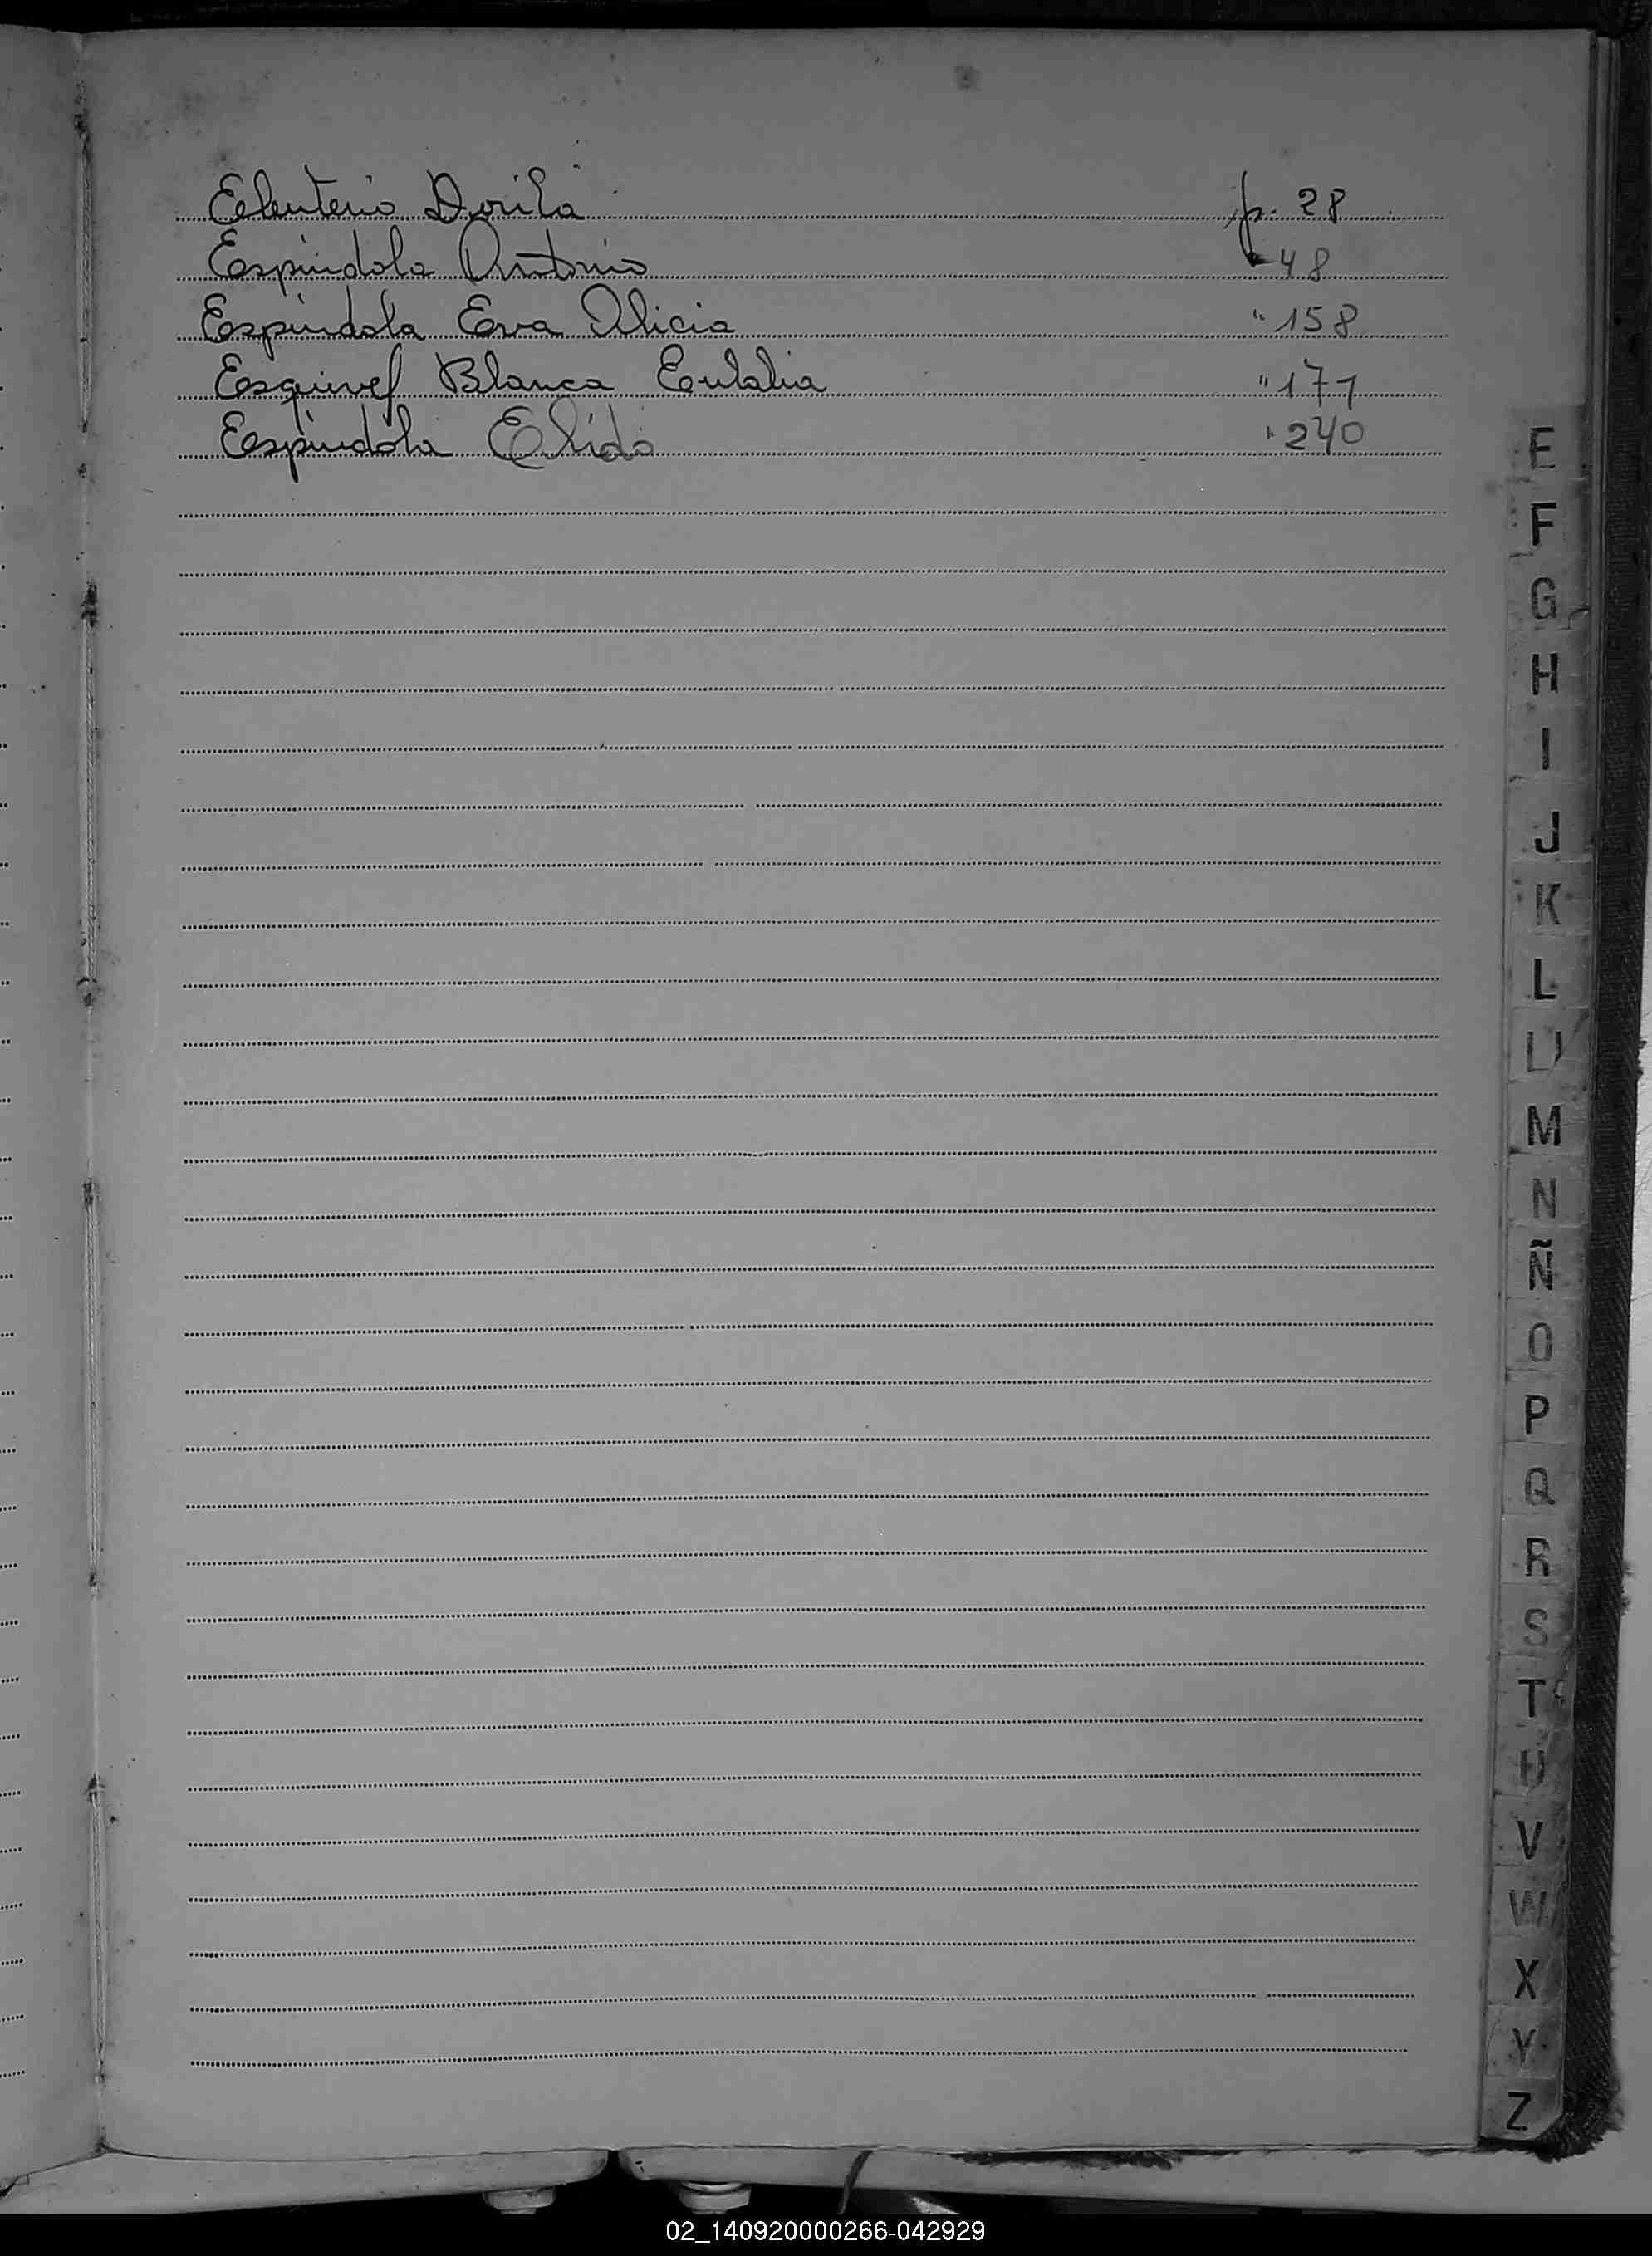 Eleuterio Dorila p. 28
Espindola Antonio 48
Espindola Eva Alicia " 158
Esquivel Blanca Eulalia " 171
Espindola Elida " 240
E
F
G
H
I
J
K
L
M
N
Ñ
O
P
Q
R
S
T
U
V
W
X
Y
Z
02_140920000266-042929